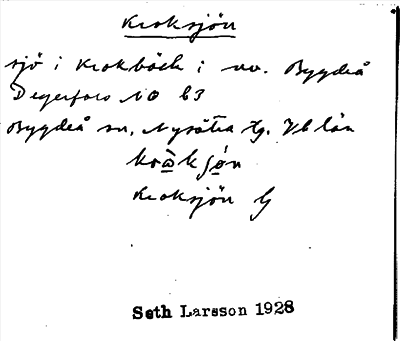 Kroksjön
sjö i Krokbäck i nv. Bygdeå
Degerfors NO b3
Bygdeå sn, Nysätra tg. Vb län
kroksjön
Kroksjön G
Seth Larsson 1928